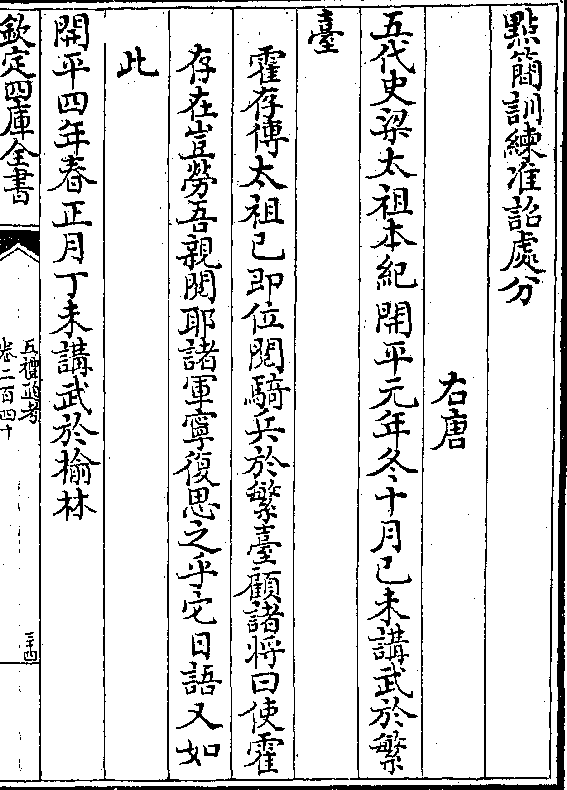 點簡訓練准詔處分
右唐
五代史梁太祖本紀開平元年冬十月已未講武於繁
臺
霍存傳太祖已即位閱騎兵於繁臺顧諸將曰使霍
存在豈勞吾親閱耶諸軍寧復思之乎它日語又如
此
開平四年春正月丁未講武於榆林
欽定四庫全書
五禮通考
卷二百四十
三十四